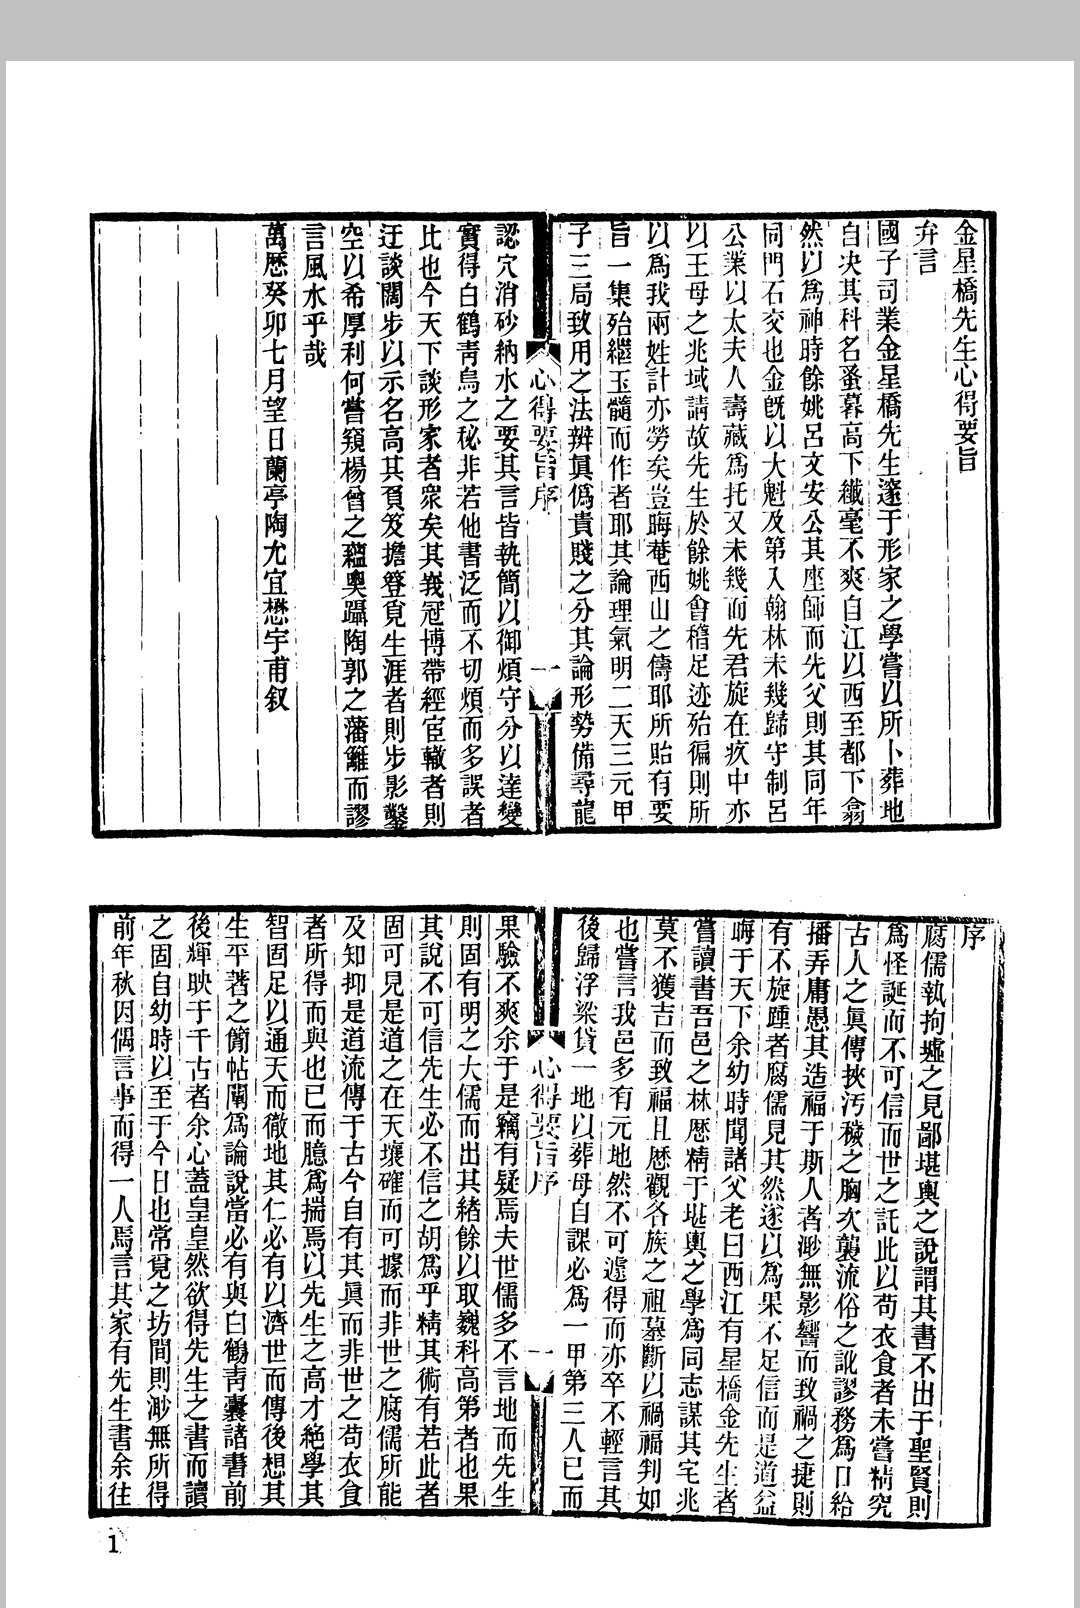 金星橋先生心得要旨
弁言
國子司業金星橋先生邃于形家之學嘗以所卜葬地
自决其科名蚤暮高下纖毫不爽自江以西至都下翕
然以爲神時餘姚呂文安公其座師而先父則其同年
同門石交也金旣以大魁及第入翰林未幾歸守制呂
公業以太夫人壽藏爲托又未幾而先君旋在疚中亦
以王母之兆域請故先生於餘姚會稽足迹殆徧則所
以爲我兩姓計亦勞矣豈晦菴西山之儔耶所貽有要
旨一集殆繼玉髓而作者耶其論理氣明二天三元甲
子三局致用之法辨眞僞貴賤之分其論形勢備尋龍
心得要旨序
一
認穴消砂納水之要其言皆執簡以御煩守分以達變
實得白鶴靑烏之秘非若他書泛而不切煩而多誤者
比也今天下談形家者衆矣其峩冠博帶經宦轍者則
迂談闊步以示名高其頁笈擔簦覓生涯者則步影鑿
空以希厚利何嘗窺楊曾之蘊奧躡陶郭之藩籬而謬
言風水乎哉
萬歷癸卯七月望日蘭亭陶允宜懋宇甫叙
序
腐儒執拘墟之見鄙堪輿之說謂其書不出于聖賢則
爲怪誕而不可信而世之託此以苟衣食者未嘗精究
古人之眞傳挾汚穢之胸次襲流俗之訛謬務爲口給
播弄庸愚其造福于斯人者渺無影響而致禍之捷則
有不旋踵者腐儒見其然遂以爲果不足信而是道益
晦于天下余幼時聞諸父老曰西江有星橋金先生者
嘗讀書吾邑之林歷精于堪輿之學爲同志謀其宅兆
莫不獲吉而致福且歷觀各族之祖墓斷以禍福判如
也嘗言我邑多有元地然不可遽得而亦卒不輕言其
後歸浮梁貸一地以葬母自課必爲一甲第三人已而
心得要旨序
一
果驗不爽余于是竊有疑焉夫世儒多不言地而先生
則固有明之大儒而出其緒餘以取巍科高第者也果
其說不可信先生必不信之胡爲乎精其術有若此者
固可見是道之在天壤確而可據而非世之腐儒所能
及知抑是道流傳于古今自有其眞而非世之苟衣食
者所得而與也已而臆爲揣焉以先生之高才絕學其
智固足以通天而徹地其仁必有以濟世而傳後想其
生平著之簡帖闡爲論說當必有與白鶴靑囊諸書前
後輝映于千古者余心蓋皇皇然欲得先生之書而讀
之固自幼時以至于今日也常覓之坊間則渺無所得
前年秋因偶言事而得一人焉言其家有先生書余往
1